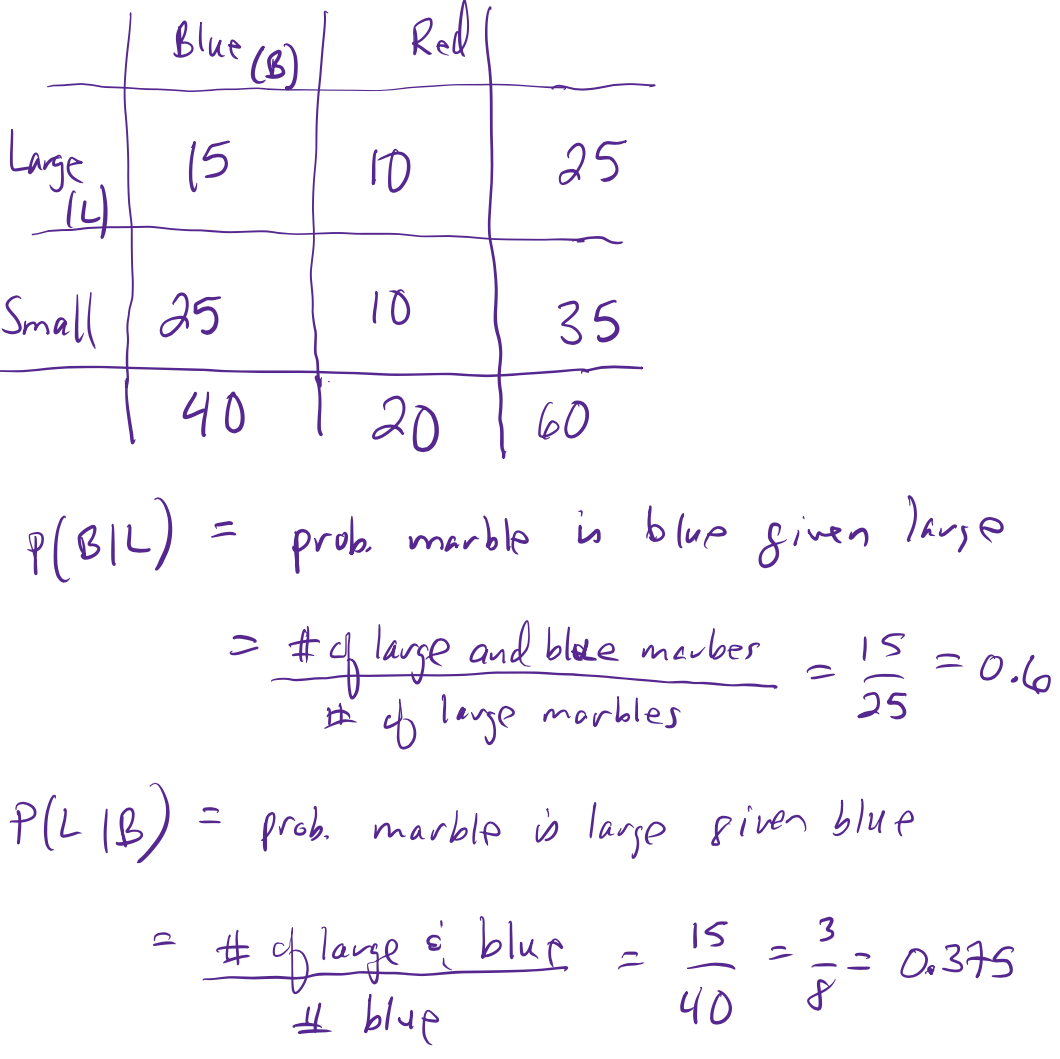 Blue (B) Red
Large (L) 15 10 25
Small 25 10 35
40 20 60
P(B|L) = prob. marble is blue given large
= # of large and blue marbes / # of large marbles = 15/25 = 0.6
P(L|B) = prob. marble is large given blue
= # of large & blue / # blue = 15/40 = 3/8 = 0.375